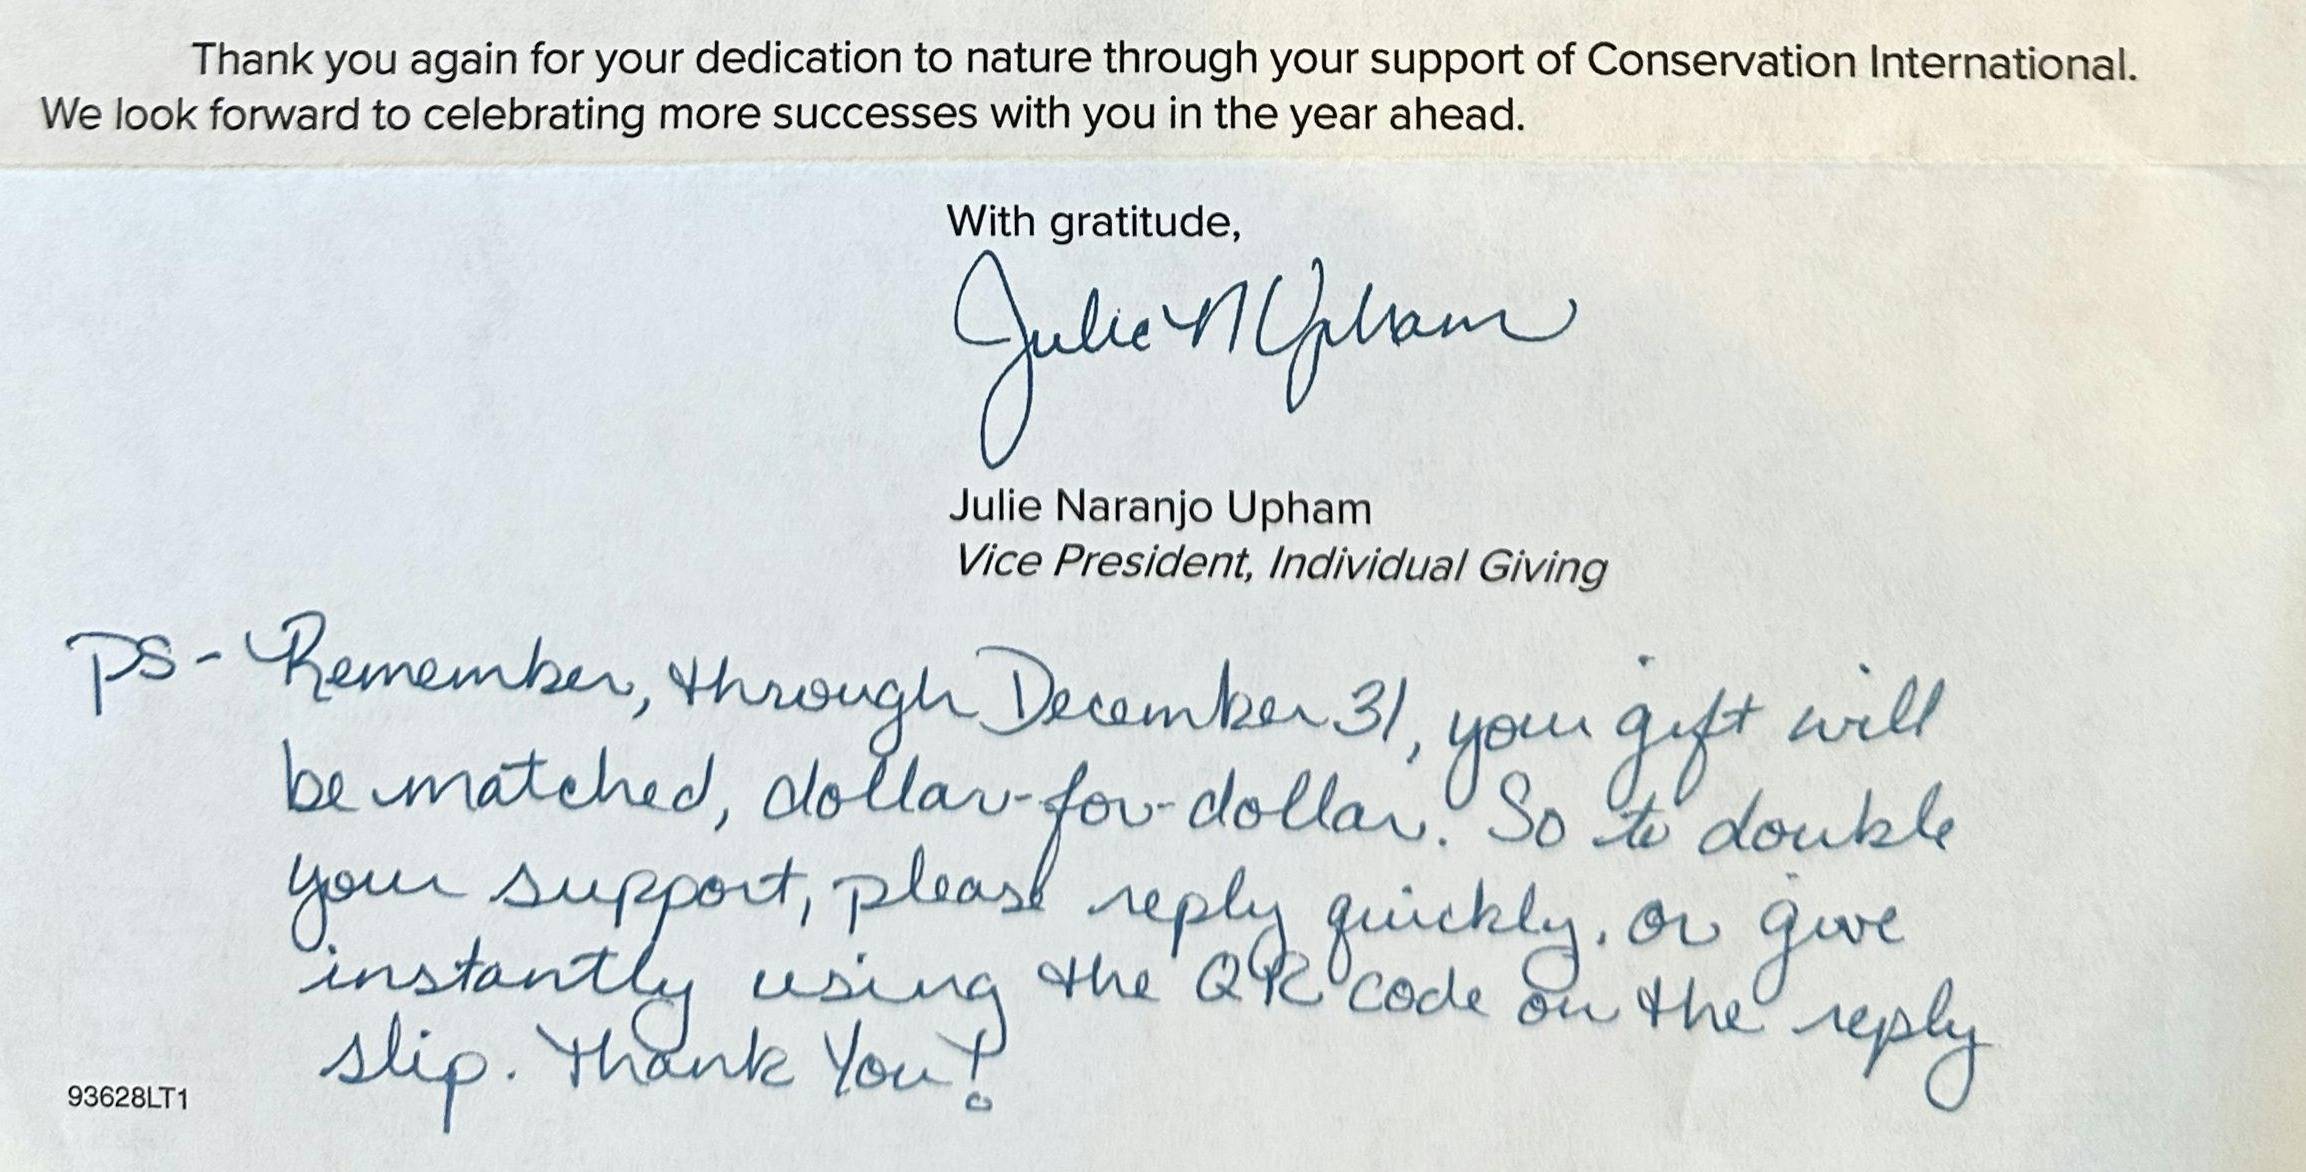 Thank you again for your dedication to nature through your support of Conservation International.
We look forward to celebrating more successes with you in the year ahead.
With gratitude,
Julie N Upham
Julie Naranjo Upham
Vice President, Individual Giving
PS - Remember, through December 31, your gift will
be matched, dollar-for-dollar. So to double
your support, please reply quickly, or give
instantly using the QR code on the reply
slip. Thank You!
93628LT1